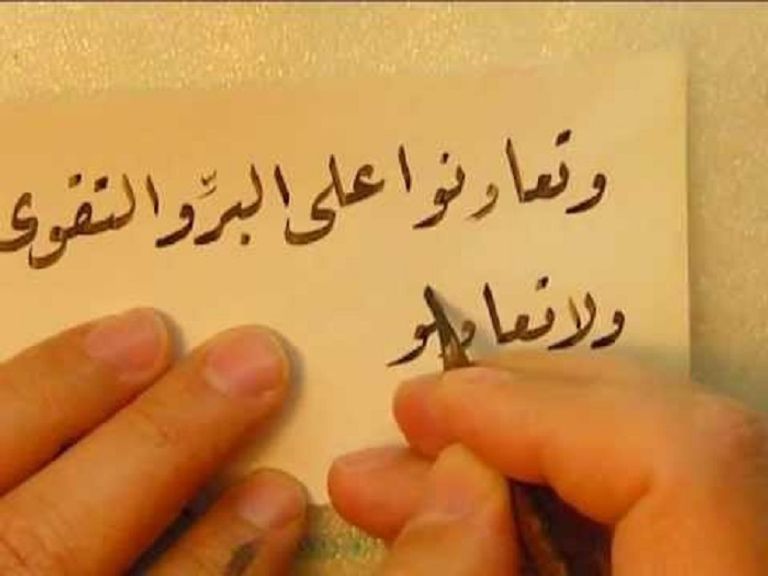 وتعاونوا على البرِّ والتقوى
ولا تعاونو